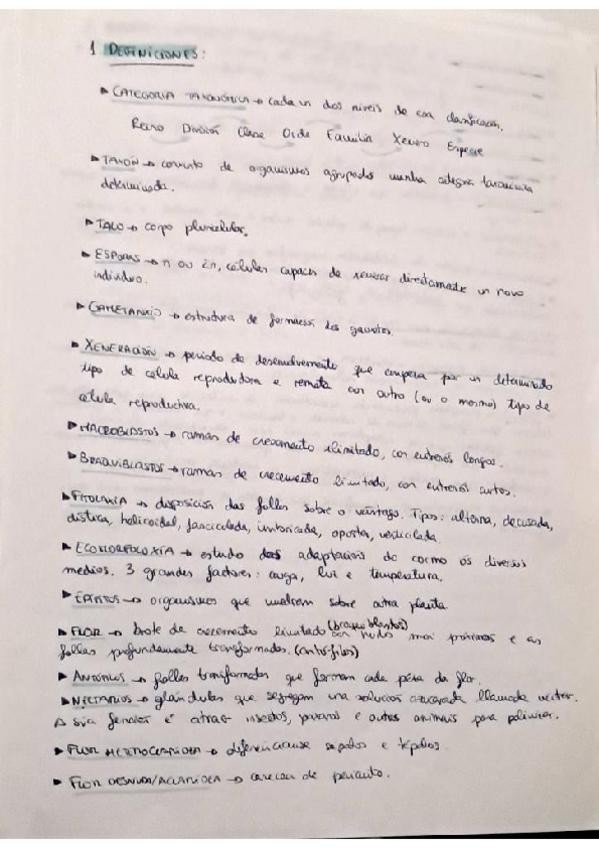 1 DEFINICIONES:
▸ CATEGORÍA TAXONÓMICA → cada un dos niveis de esa clasificación.
Reino División Clase Orde Familia Xénero Especie
▸ TAXÓN → conxunto de organismos agrupados nunha categoría taxonómica
determinada.
▸ TALO → corpo pluricelular.
▸ ESPORAS → n ou 2n, células capaces de xenerar directamente un novo
individuo.
▸ GAMETANXIO → estrutura de formación dos gametos.
▸ XENERACIÓN → período de desenvolvemento que empeza por un determinado
tipo de célula reprodutora e remata con outro (ou o mesmo) tipo de
célula reprodutiva.
▸ MACROBLASTOS → ramas de crecemento ilimitado, con entrenós longos.
▸ BRAQUIBLASTOS → ramas de crecemento limitado, con entrenós curtos.
▸ FILOTAXIA → disposición das follas sobre o vástago. Tipos: alterna, decusada,
dística, helicoidal, fasciculada, imbricada, oposta, verticilada.
▸ ECOMORFOLOXÍA → estudo das adaptacións do cormo ós diversos
medios. 3 grandes factores: auga, luz e temperatura.
▸ EPÍFITOS → organismos que medran sobre outra planta
▸ FLOR → brote de crecemento limitado (braquiblastos) con nudos moi próximos e as
follas profundamente transformadas. (antófilos)
▸ ANTÓFILOS → follas transformadas que forman cada peza da flor.
▸ NECTARIOS → glándulas que segregan una solución azucarada llamada néctar.
A súa función é atraer insectos, paxaros e outros animais para polinizar.
▸ FLOR HETEROCLAMÍDEA → diferéncianse sépalos e tépalos.
▸ FLOR DESNUDA/ACLAMÍDEA → carecen de perianto.